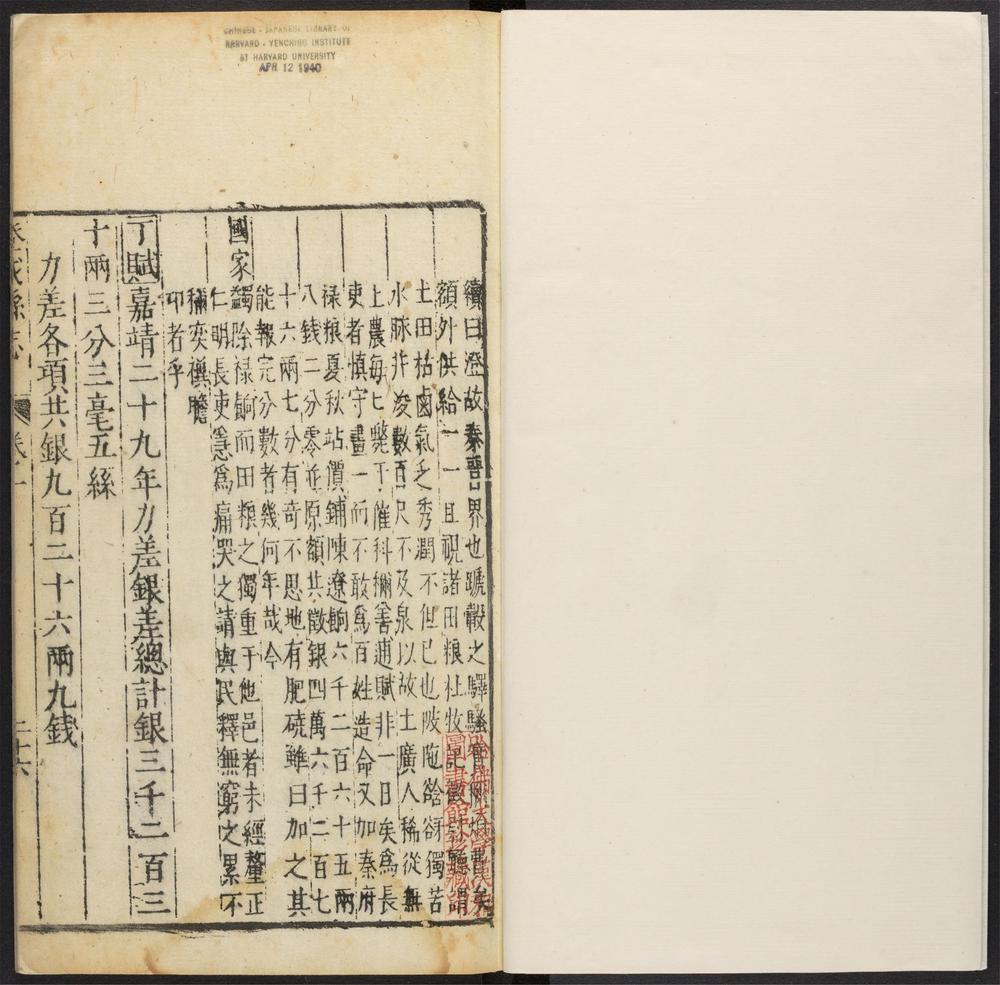 CHINESE - JAPANESE LIBRARY OF
HARVARD - YENCHING INSTITUTE
AT HARVARD UNIVERSITY
APR 12 1940
續曰澄故秦晉界也蹏轂之驛騷
額外供給一一且視諸田粮
土田枯鹵氣乏秀潤不但已也陂陁谽谺獨苦
水脉井浚數百尺不及泉以故土廣人稀從無
上農每匕斃于催科稱善逋賦非一日矣爲長
吏者慎守畫一而不敢爲百姓造命又加秦府
禄粮夏秋站價鋪陳遼餉六千二百六十五兩
八錢二分零並原額共徵銀四萬六千二百七
十六兩七分有奇不思地有肥磽雖日加之其
能報完分數者幾何年哉今
國家蠲除禄餉而田粮之獨重于他邑者未經釐正
仁明長吏㤙爲痛哭之請與民釋無窮之累不
稱奕禩瞻
卬者乎
丁賦嘉靖二十九年力差銀差總計銀三千二百三
十兩三分三毫五絲
力差各項共銀九百二十六兩九錢
縣志
二十六